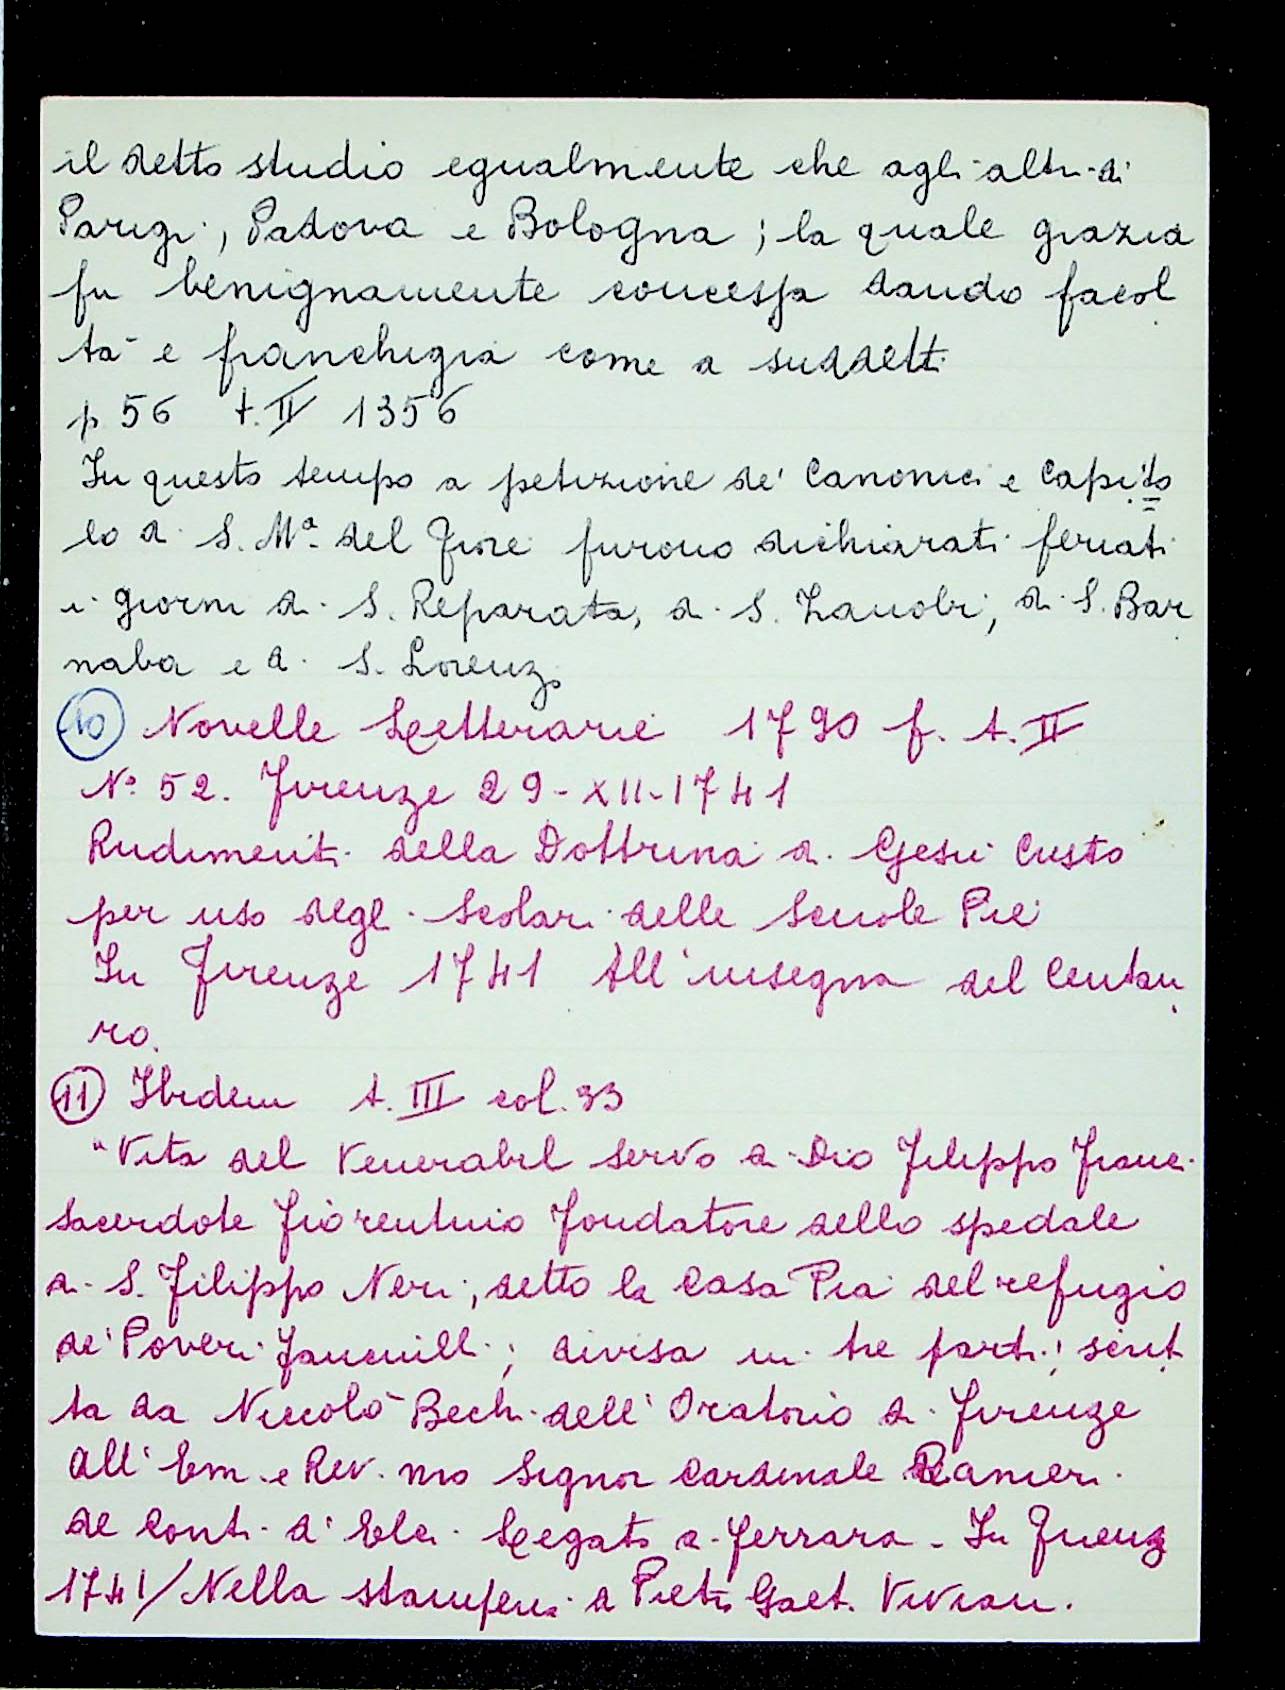 il detto studio egualmente che agli altri di
Parigi, Padova e Bologna; la quale grazia
fu benignamente concessa dando facol
tà e franchigia come a suddetti
p 56 t. II 1356
In questo tempo a petizione de' Canonici e Capito
lo di S. Mª del Fiore furono dichiarati feriati
i giorni di S. Reparata, di S. Zanobi, di S. Bar
naba e di S. Lorenzo
10 Novelle Letterarie 1790 f. t. II
Nº 52. Firenze 29-XII-1741
Rudimenti della Dottrina di Gesù Cristo
per uso degli Scolari delle Scuole Pie
In Firenze 1741 All'insegna del Centau
ro.
11 Ibidem t. III col. 33
"Vita del Venerabil Servo di Dio Filippo Franci
Sacerdote fiorentino fondatore dello spedale
di S. Filippo Neri; detto la Casa Pia del refugio
de' Poveri fanciulli; divisa in tre parti; scrit
ta da Niccolò Bechi dell'Oratorio di Firenze
All' Em. e Rev. mo Signor Cardinale Ranieri
de Conti d'Elci Legato di Ferrara - In Firenze
1741/ Nella stamperia di Pietro Gaet. Viviani.